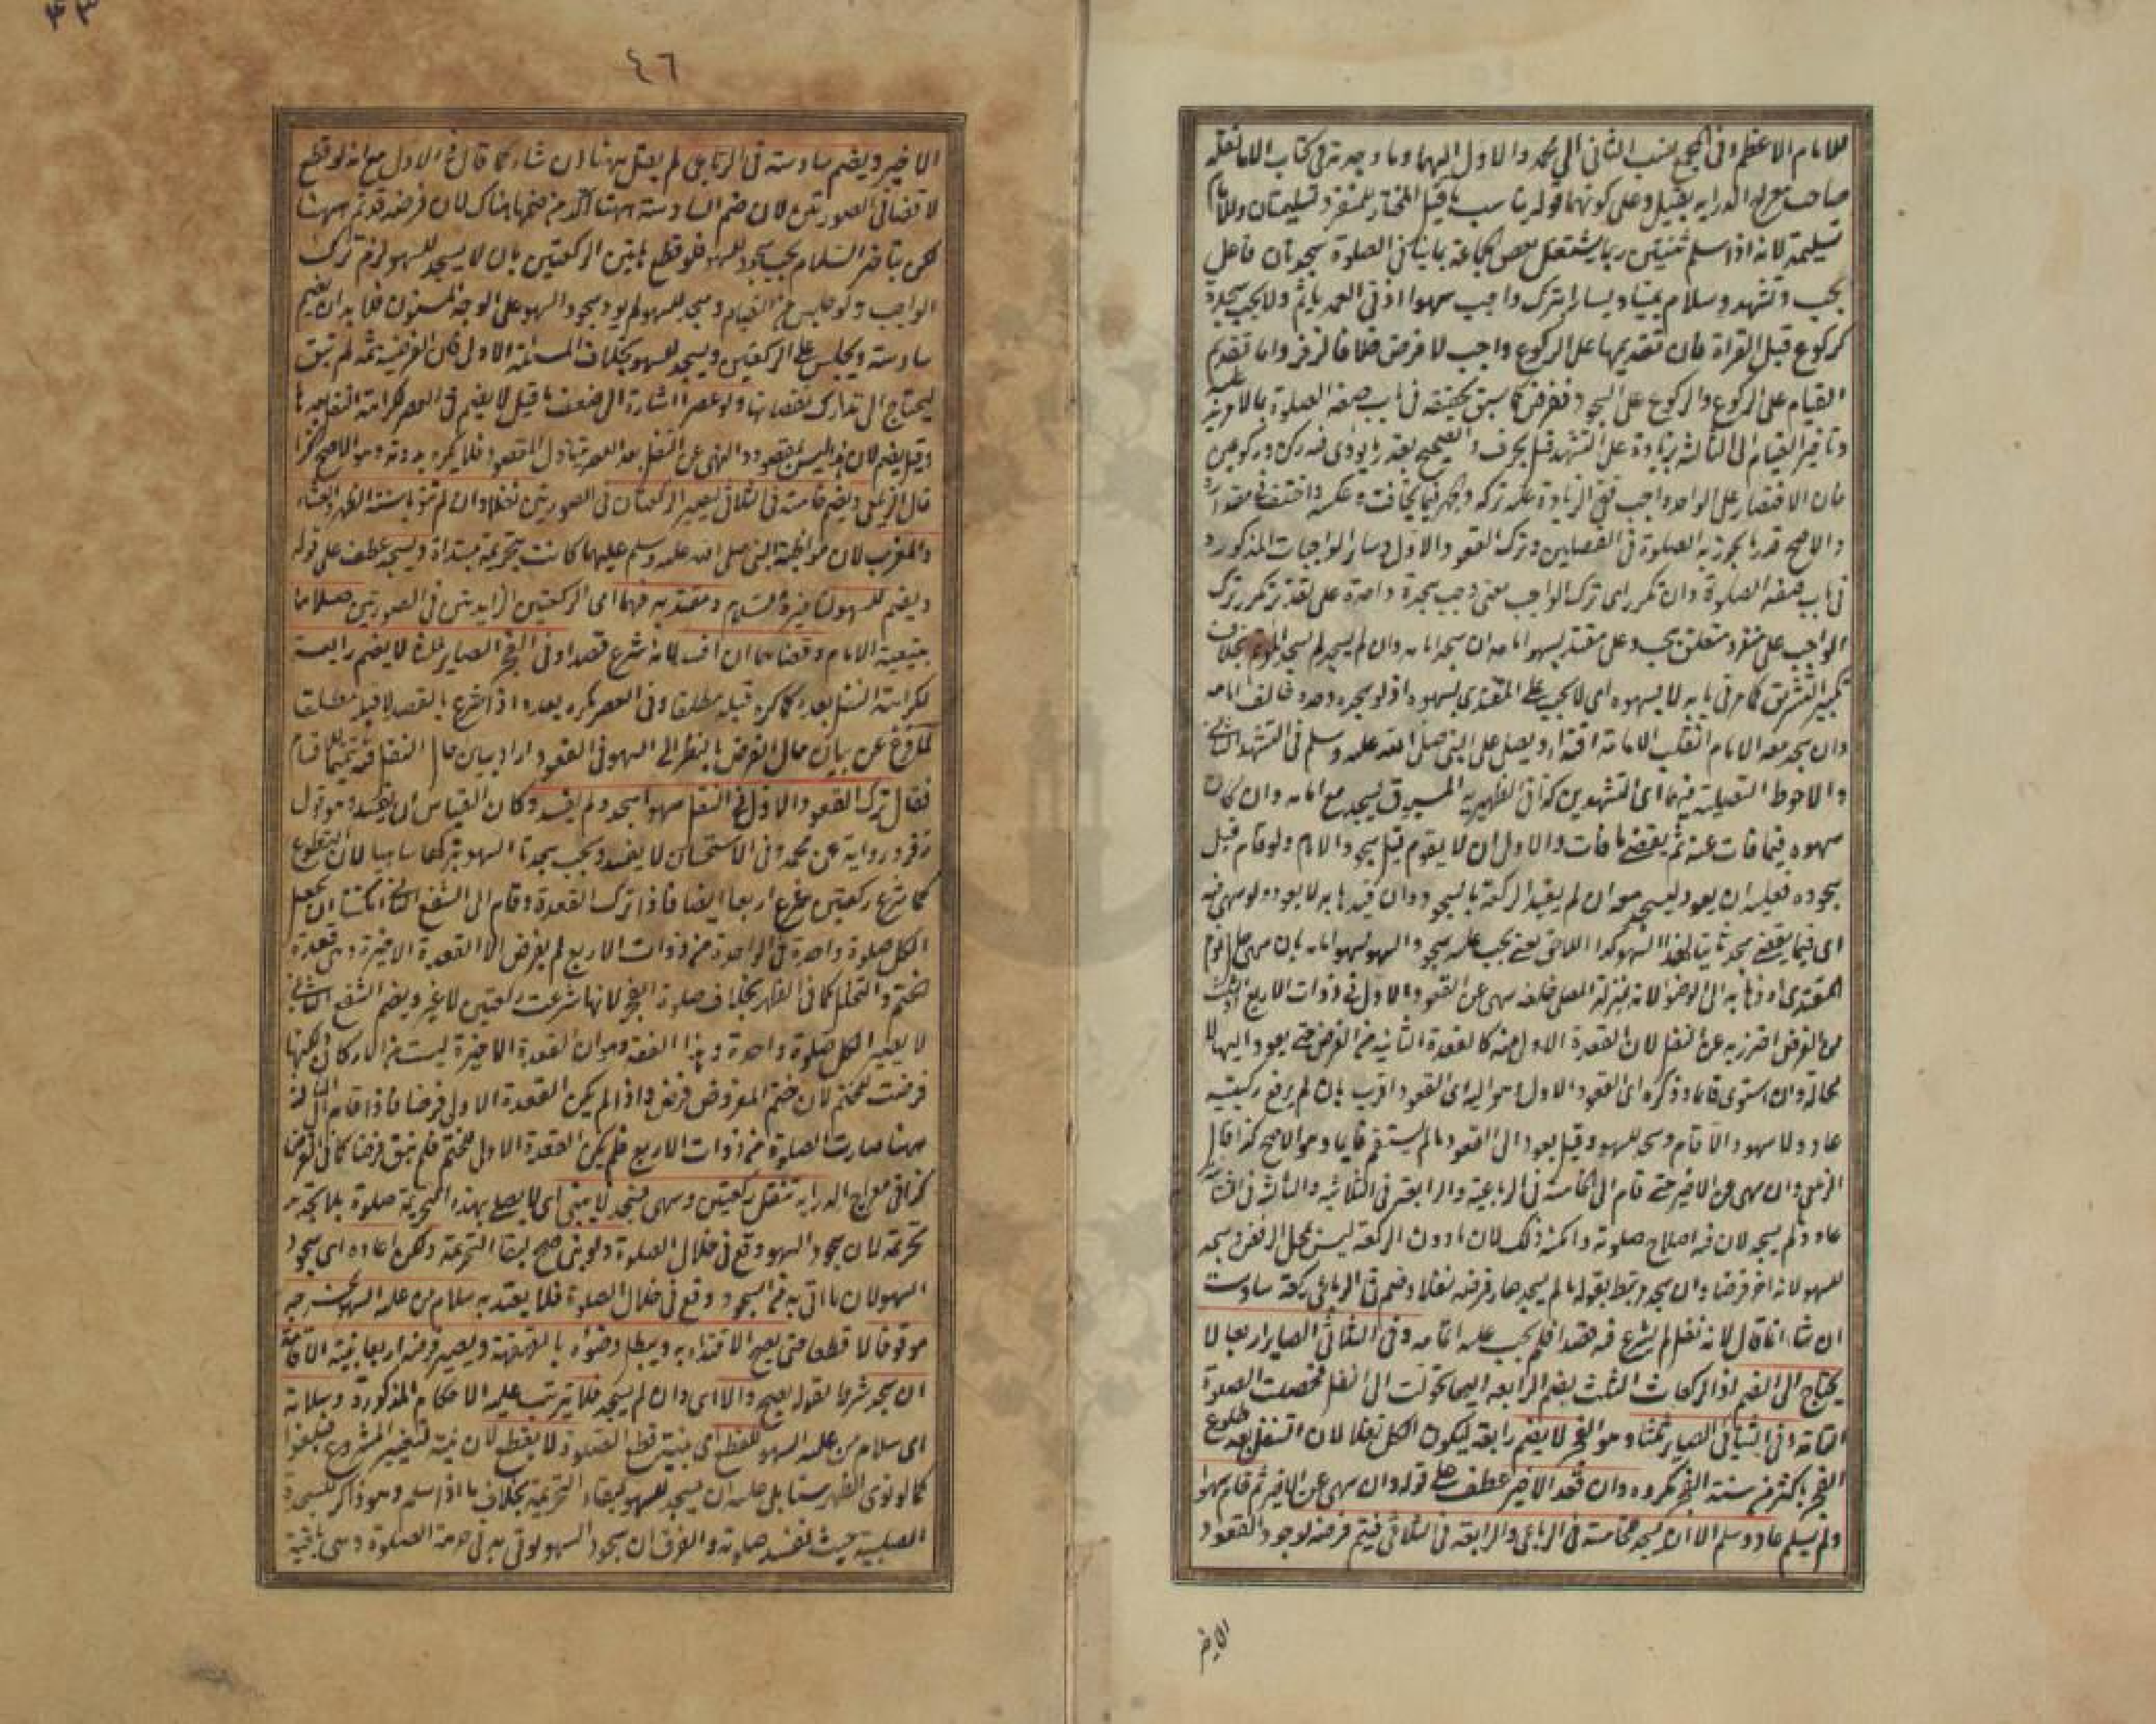 للامام الاعظم وفى المجمع ينسب الثانى الى محمد والاول اليهما وما وجدته فى كتاب الا ما نقله
صاحب معراج الدرايه بقيل وعلى كونهما قوله يناسب ما قيل المختار للمنفرد تسليمتان وللامام
تسليمة لانه اذا سلم ثنيتين ربما يشتغل بعض الجماعة بما ينافى الصلوة سجدتان فاعل
يجب وتشهد وسلام يمينا ويسارا بترك واجب سهوا اذ فى العمد ياثم ولا يجب سجدة
كركوع قبل القراة فان تقديمها على الركوع واجب لا فرض خلافا لزفر واما تقديم
القيام على الركوع والركوع على السجود ففرض كما سبق تحقيقه فى باب صفة الصلوة بالامزيد عليه
وتاخير القيام الى الثالثة بزيادة على التشهد قيل بحرف والصحيح بقدر ما يودى فيه ركن وركوعين
فان الاقتصار على الواحد واجب ففى الزيادة عليه تركه وجهر فيما يخافت وعكسه واختلف فى مقداره
والاصح قدر ما يجوز به الصلوة فى الفصلين وترك القعود الاول وسائر الواجبات المذكورة
فى باب صفة الصلوة وان تكرر اى ترك الواجب معنى وجب سجدة واحدة على تقدير تكرر ترك
الواجب على منفرد متعلق بيجب وعلى مقتد بسهو امامه ان سجد امامه وان لم يسجد لم يسجد المؤتم بخلاف
تكبير التشريق كما مر فى بابه لا بسهوه اى لا يجب على المقتدى بسهوه اذ لو سجد وحده خالف امامه
وان سجد معه الامام انقلب الامامة اقتداء ويصلى على النبى صلى الله عليه وسلم فى التشهد الثانى
والاحوط التصلية فيهما اى التشهدين كذا فى الظهيرية المسبوق يسجد مع امامه وان كان
سهوه فيما فات عنه ثم يقضى ما فات والاولى ان لا يقوم قبل سجود الامام ولو قام قبل
سجوده فعليه ان يعود ليسجد معه ان لم يقيد الركعة بالسجود وان قيدها به لا يعود ولو سهى فيه
اى فيما يقضى سجد ثانيا لهذا السهو كذا اللاحق يعنى يجب عليه سجود السهو لسهو امامه بان سهى حال نوم
المقتدى او ذهابه الى الوضو لانه بمنزلة المصلى خلفه سهى عن القعود الاول فى ذوات الاربع او الثلث
من الفرض احترز به عن النفل لان القعدة الاولى منه كالقعدة الثانية من الفرض حتى يعود اليها لا
محالة وان استوى قائما وذكره اى القعود الاول وهو اليه اى القعود اقرب بان لم يرفع ركبتيه
عاد ولا سهو والا قام وسجد للسهو وقيل يعود الى القعود ما لم يستقم قايما وهو الاصح كذا قال
الزيلعى وان سهى عن الاخير حتى قام الى الخامسة فى الرباعية والرابعة فى الثلاثية والثالثة فى الثنائية
عاد ما لم يسجد لان فيه اصلاح صلوته وامكنه ذلك لان ما دون الركعة ليس بمحل الرفض وسجد
للسهو لانه اخر فرضا وان سجد مرتبط بقوله ما لم يسجد صار فرضه نفلا وضم فى الرباعى ركعة سادسة
ان شاء انما قال لانه نفل لم يشرع فيه قصدا فلم يجب عليه اتمامه وفى الثلاثى الصاير اربعا لا
يحتاج الى الضم اذ الركعات الثلث بضم الرابعة اليها تحولت الى النفل فحصلت الصلوة
التامة وفى الثنائى الصاير ثلثا وهو الفجر لا يضم رابعة ليكون الكل نفلا لان التنفل بعد طلوع
الفجر باكثر من سنة الفجر مكروه وان قعد الاخير عطف على قوله وان سهى عن الاخير ثم قام سهوا
ولم يسلم عاد وسلم الا ان يسجد لخامسة فى الرباعى والرابعة فى الثلاثى فيتم فرضه لوجود القعود
الاخير
٤٦
الاخير ويضم سادسة فى الرباعى لم يقل ههنا ان شاء كما قال فى الاول مع انه لو قطع
لا قضا فى الصورتين لان ضم السادسة ههنا اكد من ضمها هناك لان فرضه قد تم ههنا
لكن بتاخير السلام يجب سجود السهو فلو قطع هاتين الركعتين بان لا يسجد للسهو لزم ترك
الواجب ولو جلس من القيام وسجد للسهو لم يود سجود السهو على الوجه المسنون فلا بد ان يضم
سادسة ويجلس على الركعتين ويسجد للسهو بخلاف المسئلة الاولى فان الفرضية ثمه لم تبق
ليحتاج الى تدارك نقصانها ولو عصرا اشارة الى ضعف ما قيل لا يضم فى العصر لكراهة النفل بعدها
وقيل يضم لان هذا ليس بمقصود والنهى عن التنفل بعد العصر يتناول المقصود فلا يكره بدونه وهو الاصح كذا
قال الزيلعى ويضم خامسة فى الثلاثى ليصير الركعتان فى الصورتين نفلا وان لم تنوبا سنة الظهر والعشاء
والمغرب لان مواظبة النبى صلى الله عليه وسلم عليهما كانت بتحريمة مبتداة ويسجد عطف على قوله
ويضم للسهو لتاخيره السلام ومقتد به فيهما اى الركعتين الزايدتين فى الصورتين صلاهما
بتبعية الامام وقضاهما ان افسد لانه شرع قصدا وفى الفجر الصاير ثلثا لا يضم رابعة
لكراهة النفل بعده كما كره قبله مطلقا وفى العصر يكره بعده اذا شرع بالقصد لا قبله مطلقا
لما فرغ عن بيان حال الفرض بالنظر الى السهو فى القعود اراد بيان حال النفل فيه تتميما للمقام
فقال ترك القعود الاول فى النفل سهوا سجد ولم يفسد وكان القياس ان يفسد وهو قول
زفر ورواية عن محمد وفى الاستحسان لا يفسد ويجب سجدتا السهو بتركها ساهيا لان التطوع
كما شرع ركعتين شرع اربعا ايضا فاذا ترك القعدة وقام الى الشفع الثانى امكننا ان نجعل
الكل صلوة واحدة وفى الواحدة من ذوات الاربع لم يفرض الا القعدة الاخيرة وهى قعدة
الختم والتحلل كما فى الظهر بخلاف صلوة الفجر لانها شرعت ركعتين لا غير وبضم الشفع الثانى
لا يصير الكل صلوة واحدة وهذا الفقه وهو ان القعدة الاخيرة ليست من الاركان ولكنها
فرضت للختم لان ختم المفروض فرض واذا لم يكن القعدة الاولى فرضا فاذا قام الى الثالثة
ههنا صارت الصلوة من ذوات الاربع فلم يكن القعدة الاولى للختم فلم تبق فرضا كما فى الفرض
كذا فى معراج الدرايه تنفل ركعتين وسهى فسجد لا يبنى اى لا يصلى بهذه التحريمة صلوة بلا تجديد
تحريمة لان سجود السهو وقع فى خلال الصلوة ولو بنى صح لبقا التحريمة ولكن اعاد اى سجود
السهو لان ما اتى به من السجود وقع فى خلال الصلوة فلا يعتد به سلام من عليه السهو يخرجه
موقوفا لا قطعا حتى يصح الاقتداء به ويبطل وضوه بالقهقهة ويصير فرضه اربعا بنية الاقامة
ان سجد شرط لقوله يصح والا اى وان لم يسجد فلا يترتب عليه الاحكام المذكورة وسلامه
اى سلام من عليه السهو للقطع اى بنية قطع الصلوة لا يقطع لان نيته لتغيير المشروع فيلغوا
كما لو نوى الظهر ستا بل عليه ان يسجد للسهو لبقاء التحريمة بخلاف ما اذا سلم وهو ذاكر للسجدة
الصلبية حيث تفسد صلوته والفرق ان سجود السهو يوتى به فى حرمة الصلوة وهى باقية